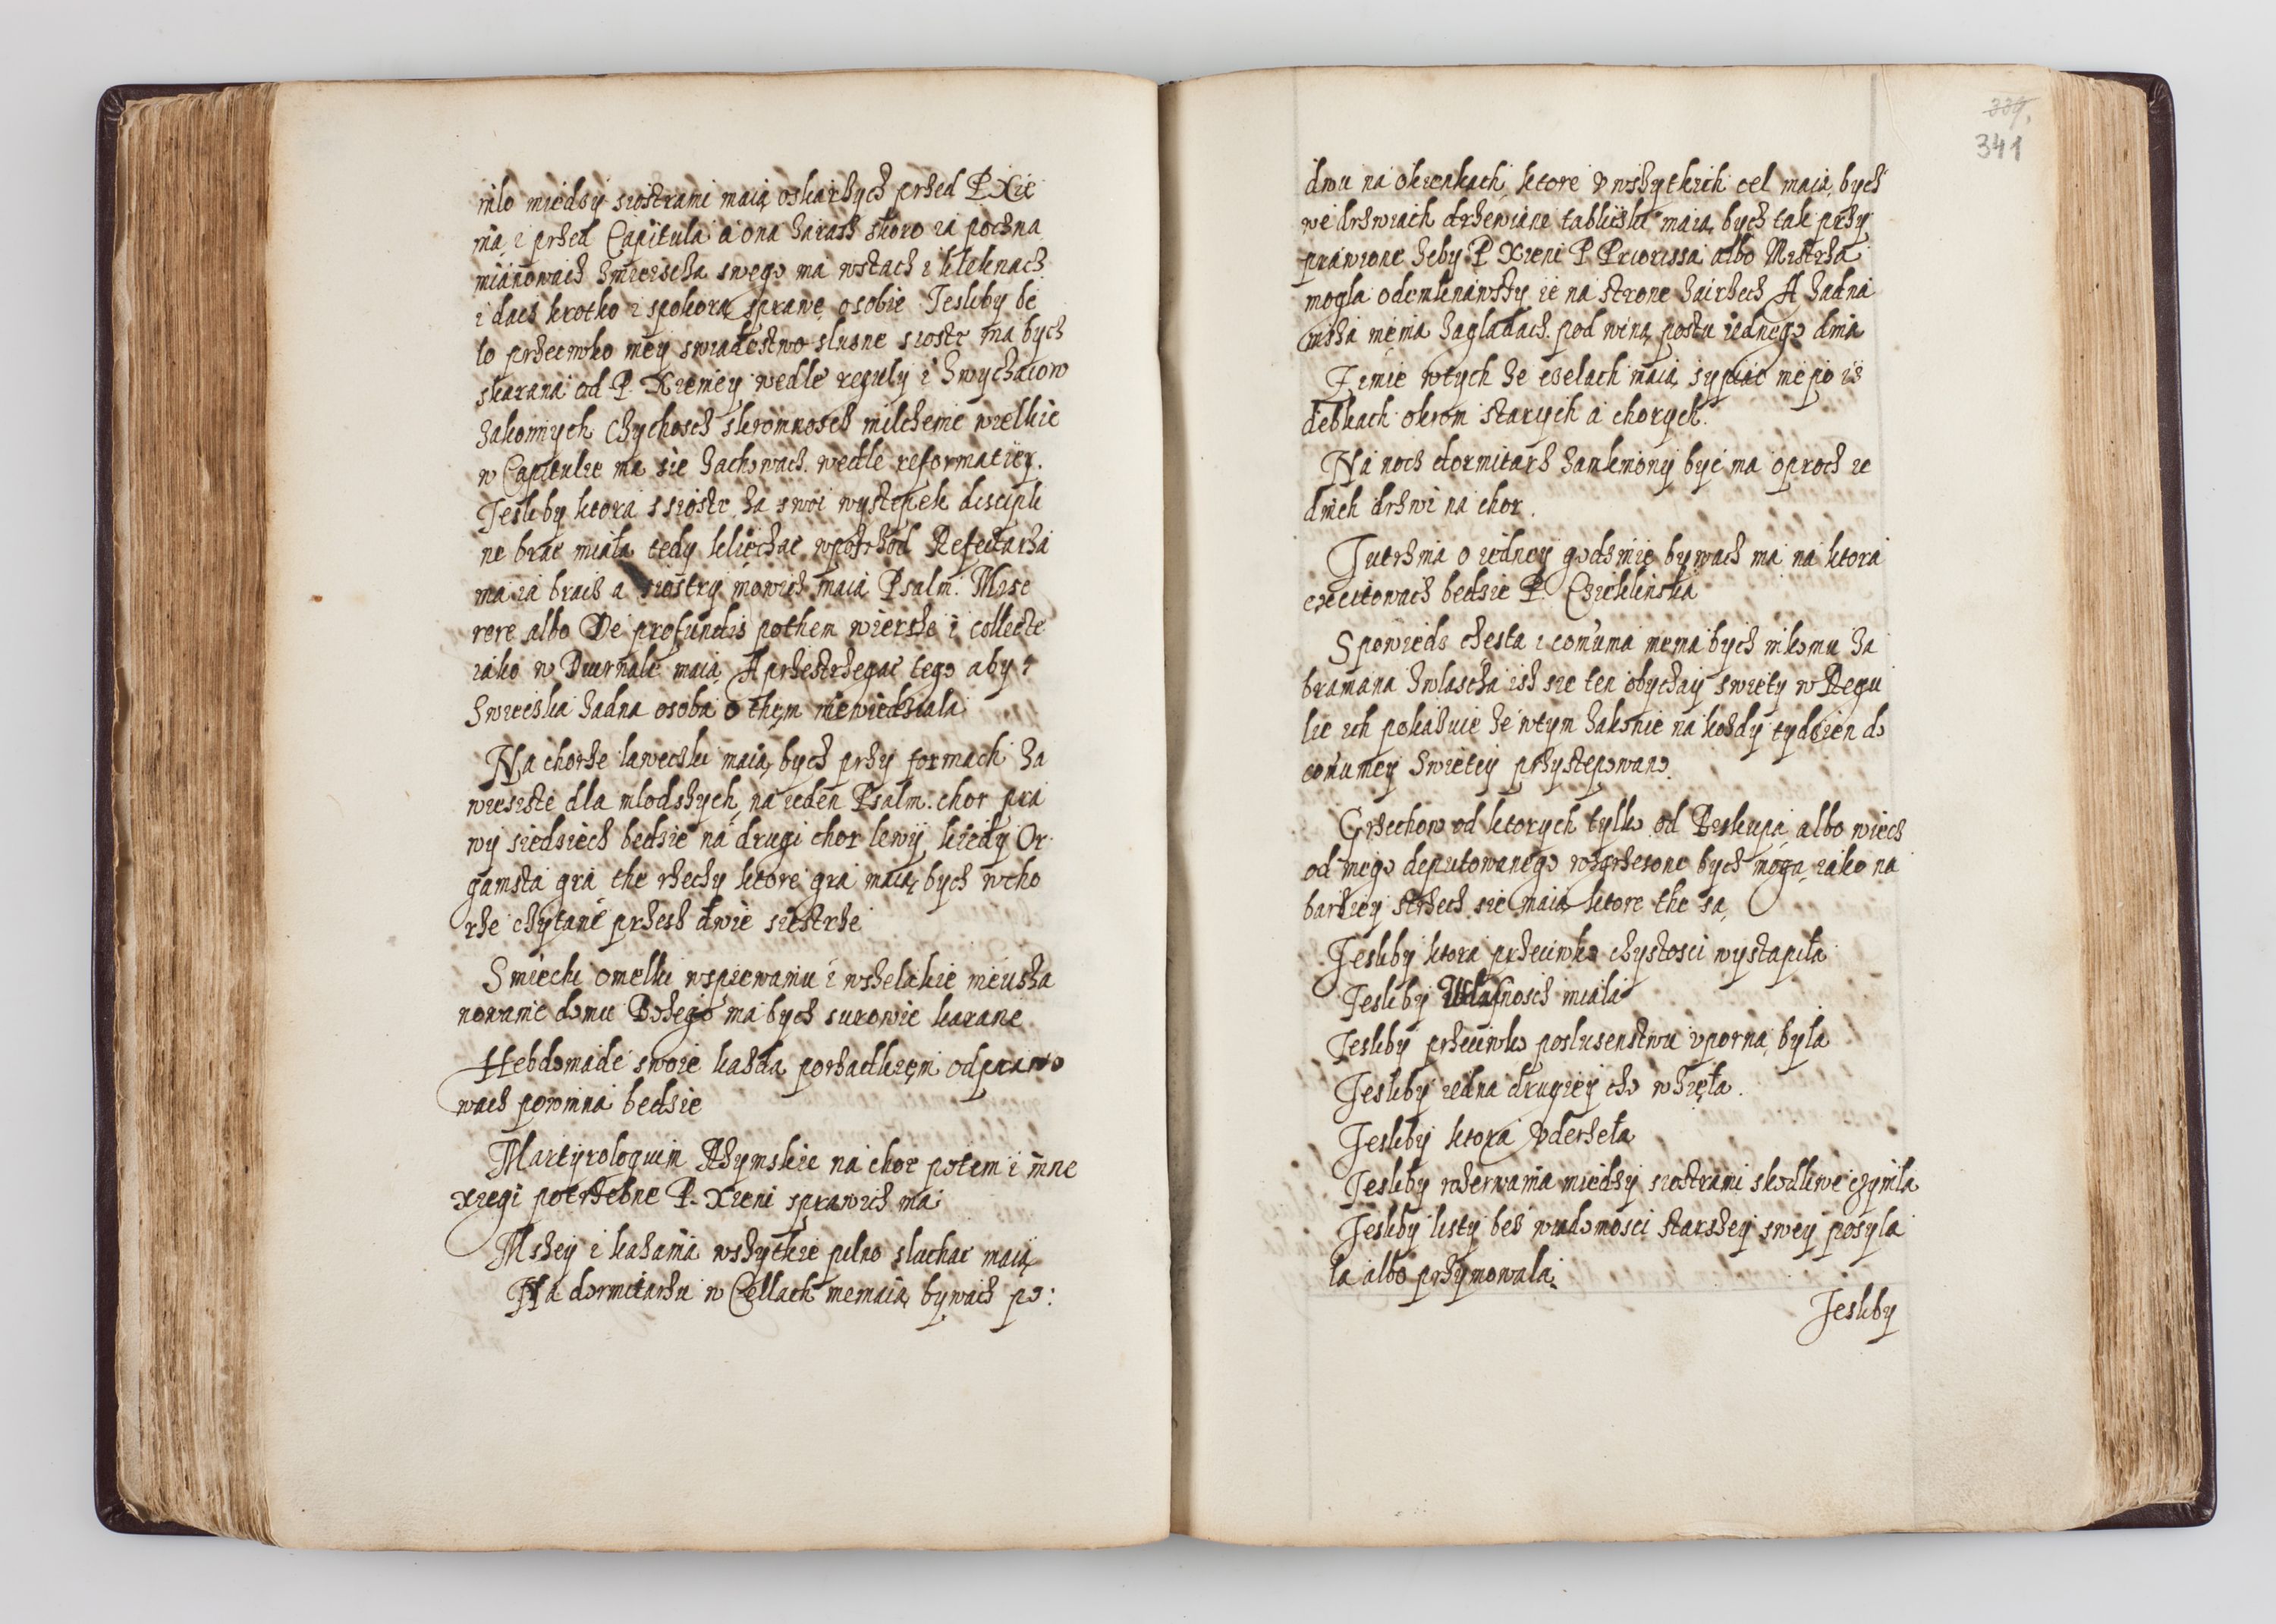 nilo miedzy siostrami maią oskarzycz przed P. Xie
mą i przed Capitula a ona zarazs skoro ią poczna
mianowacz zmieiscza swego ma wstacz i kleknacz
i dacz krotko i spokorą sprawę osobie Iesliby bé
lo przeciwko niey swiadectwo slusne siostr ma bycz
skarana od P. Xieniey wedle reguly i zwyczaiow
zakonnych Czychoscz skromnoscz milczenie wielkie
w Capitulie ma sie zachowacz. wedle reformatiey.
Iesliby ktora s siostr za swoi wystepek disciplí
ne brac miała tedy kliéczac wpostrzod Refectarza
ma ią bracz a siostry mowicz maią Psalm: Mise
rere albo De profundis pothem wiersze i collecte
iako w Diurnale maią A przestrzegac tego aby s
Swiecska zadna osoba o them niewiedziala
Na chorze laweczki maią bycz przy formach za
wiesiste dla mlodszych na ieden Psalm. chor pra
wy siedziecz bedzie na drugi chor lewy kiedy Or
ganista gra the rzeczy ktore gra maią bycz wcho
rze czytane przesz dwie siestrze
Smiechi omelki wspiewaniu i wszelakie nieusza
nowanie domu Bozego ma bycz surowie karane
Hebdomade swoie kazda porzadkiem odprawo
wacz powinna bedzie
Martyrologium Rzymskie na chor potem i inne
xiegi potrzebne P. Xieni sprawicz ma
Mszey i kazania wszytkie pilno sluchac maią
Na dormitarzu w Cellach niemaią bywacz po:
339.
341
dwu na okienkach ktore v wszytkich cel maią bycz
we drzwiach drzewiane tabliczki maią bycz tak przy
prawione zeby P Xieni P Priorissa albo Mistrza
mogla odemknawszy ie na strone zairzecz A zadna
insza niema zagladacz pod winą postu iednego dnia
Zimie wtych ze celach maią sypiac nie po iz
debkach okrom starych a chorych.
Na nocz dormitarz zamkniony być ma oprocz ie
dnich drzwi na chor.
Iutrznia o iedney godzinie bywacz ma na ktora
excitowacz bedzie P. Czieklinska
Spowiedz czesta i comunia niema bycz nikomu za
braniana zwlascza isz sie ten obyczay swiety w Regu
lie ich pokazuie ze wtym zakonie na kozdy tydzien do
comuniey swietey przystepowano.
Grzechow od ktorych tylko od Biskupa albo wiecz
od niego deputowanego rozgrzesone bycz moga iako na
barziey strzecz sie maią ktore the są
Iesliby ktora przeciwko czystosci wystapiła
Iesliby Własnoscz miala
Iesliby przeciwko poslusenstwu vporna była
Iesliby iedna drugiey cho wzięta.
Iesliby ktora vderzeła
Iesliby rozerwania miedzy siostrami skodliwe czyniła
Iesliby listy bez wiadomosci starszey swey posyla
la albo przymowala.
Iesliby